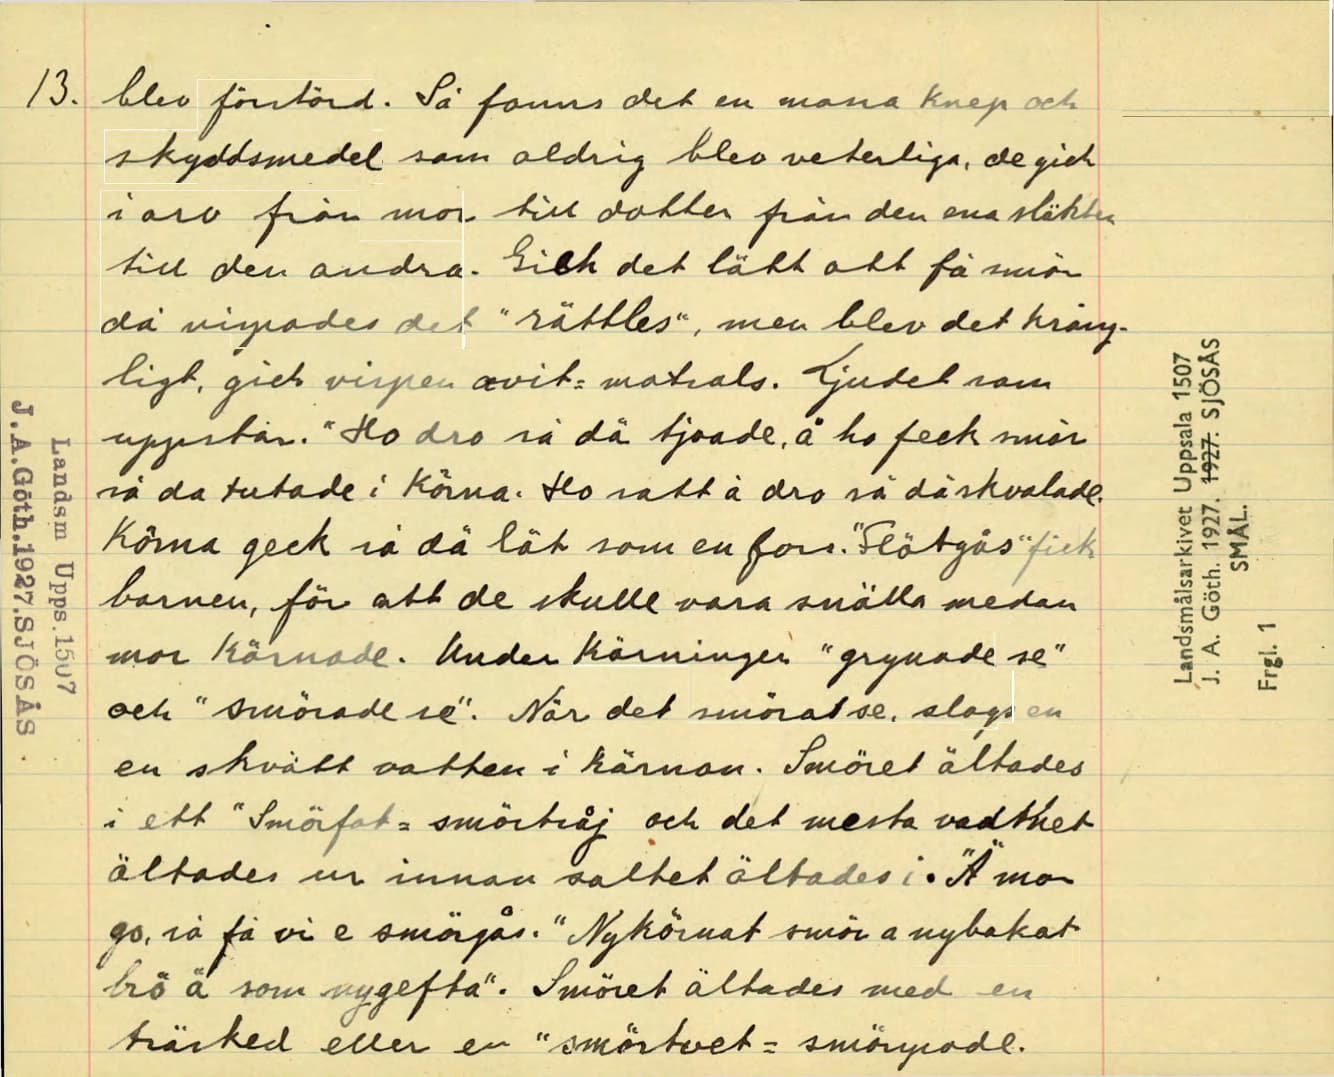 13.
blev förstörd. Så fanns det en massa knep och
skyddsmedel som aldrig blev veterliga, de gick
i arv från mor till dotter från den ena släkten
till den andra. Gick det lätt att få smör
då vispades det "rättles", men blev det krång-
ligt, gick vispen avit= motsals. Ljudet som
uppstår. "Ho dro så dä tjoade, å ho feck smör
så da tutade i körna. Ho satt å dro så dä skvalade.
Körna geck så dä lät som en fors. "Flötgås" fick
barnen, för att de skulle vara snälla medan
mor kärnade. Under kärningen "grynade se"
och "smörade se". När det smörat se, slogs en
en skvätt vatten i kärnan. Smöret ältades
i ett "Smörfat= smörtråj och det mesta vadthet
ältades ur innan saltet ältades i. "Ä mor
go, så få vi e smörgås." Nykörnat smör a nybakat
brö ä som nygefta". Smöret ältades med en
träsked eller en "smörtvet= smörspade.
Landsm Upps.1507
J.A.Göth.1927.SJÖSÅS
Landsmålsarkivet Uppsala 1507
J. A. Göth. 1927. 1927. SJÖSÅS
SMÅL.
Frgl. 1